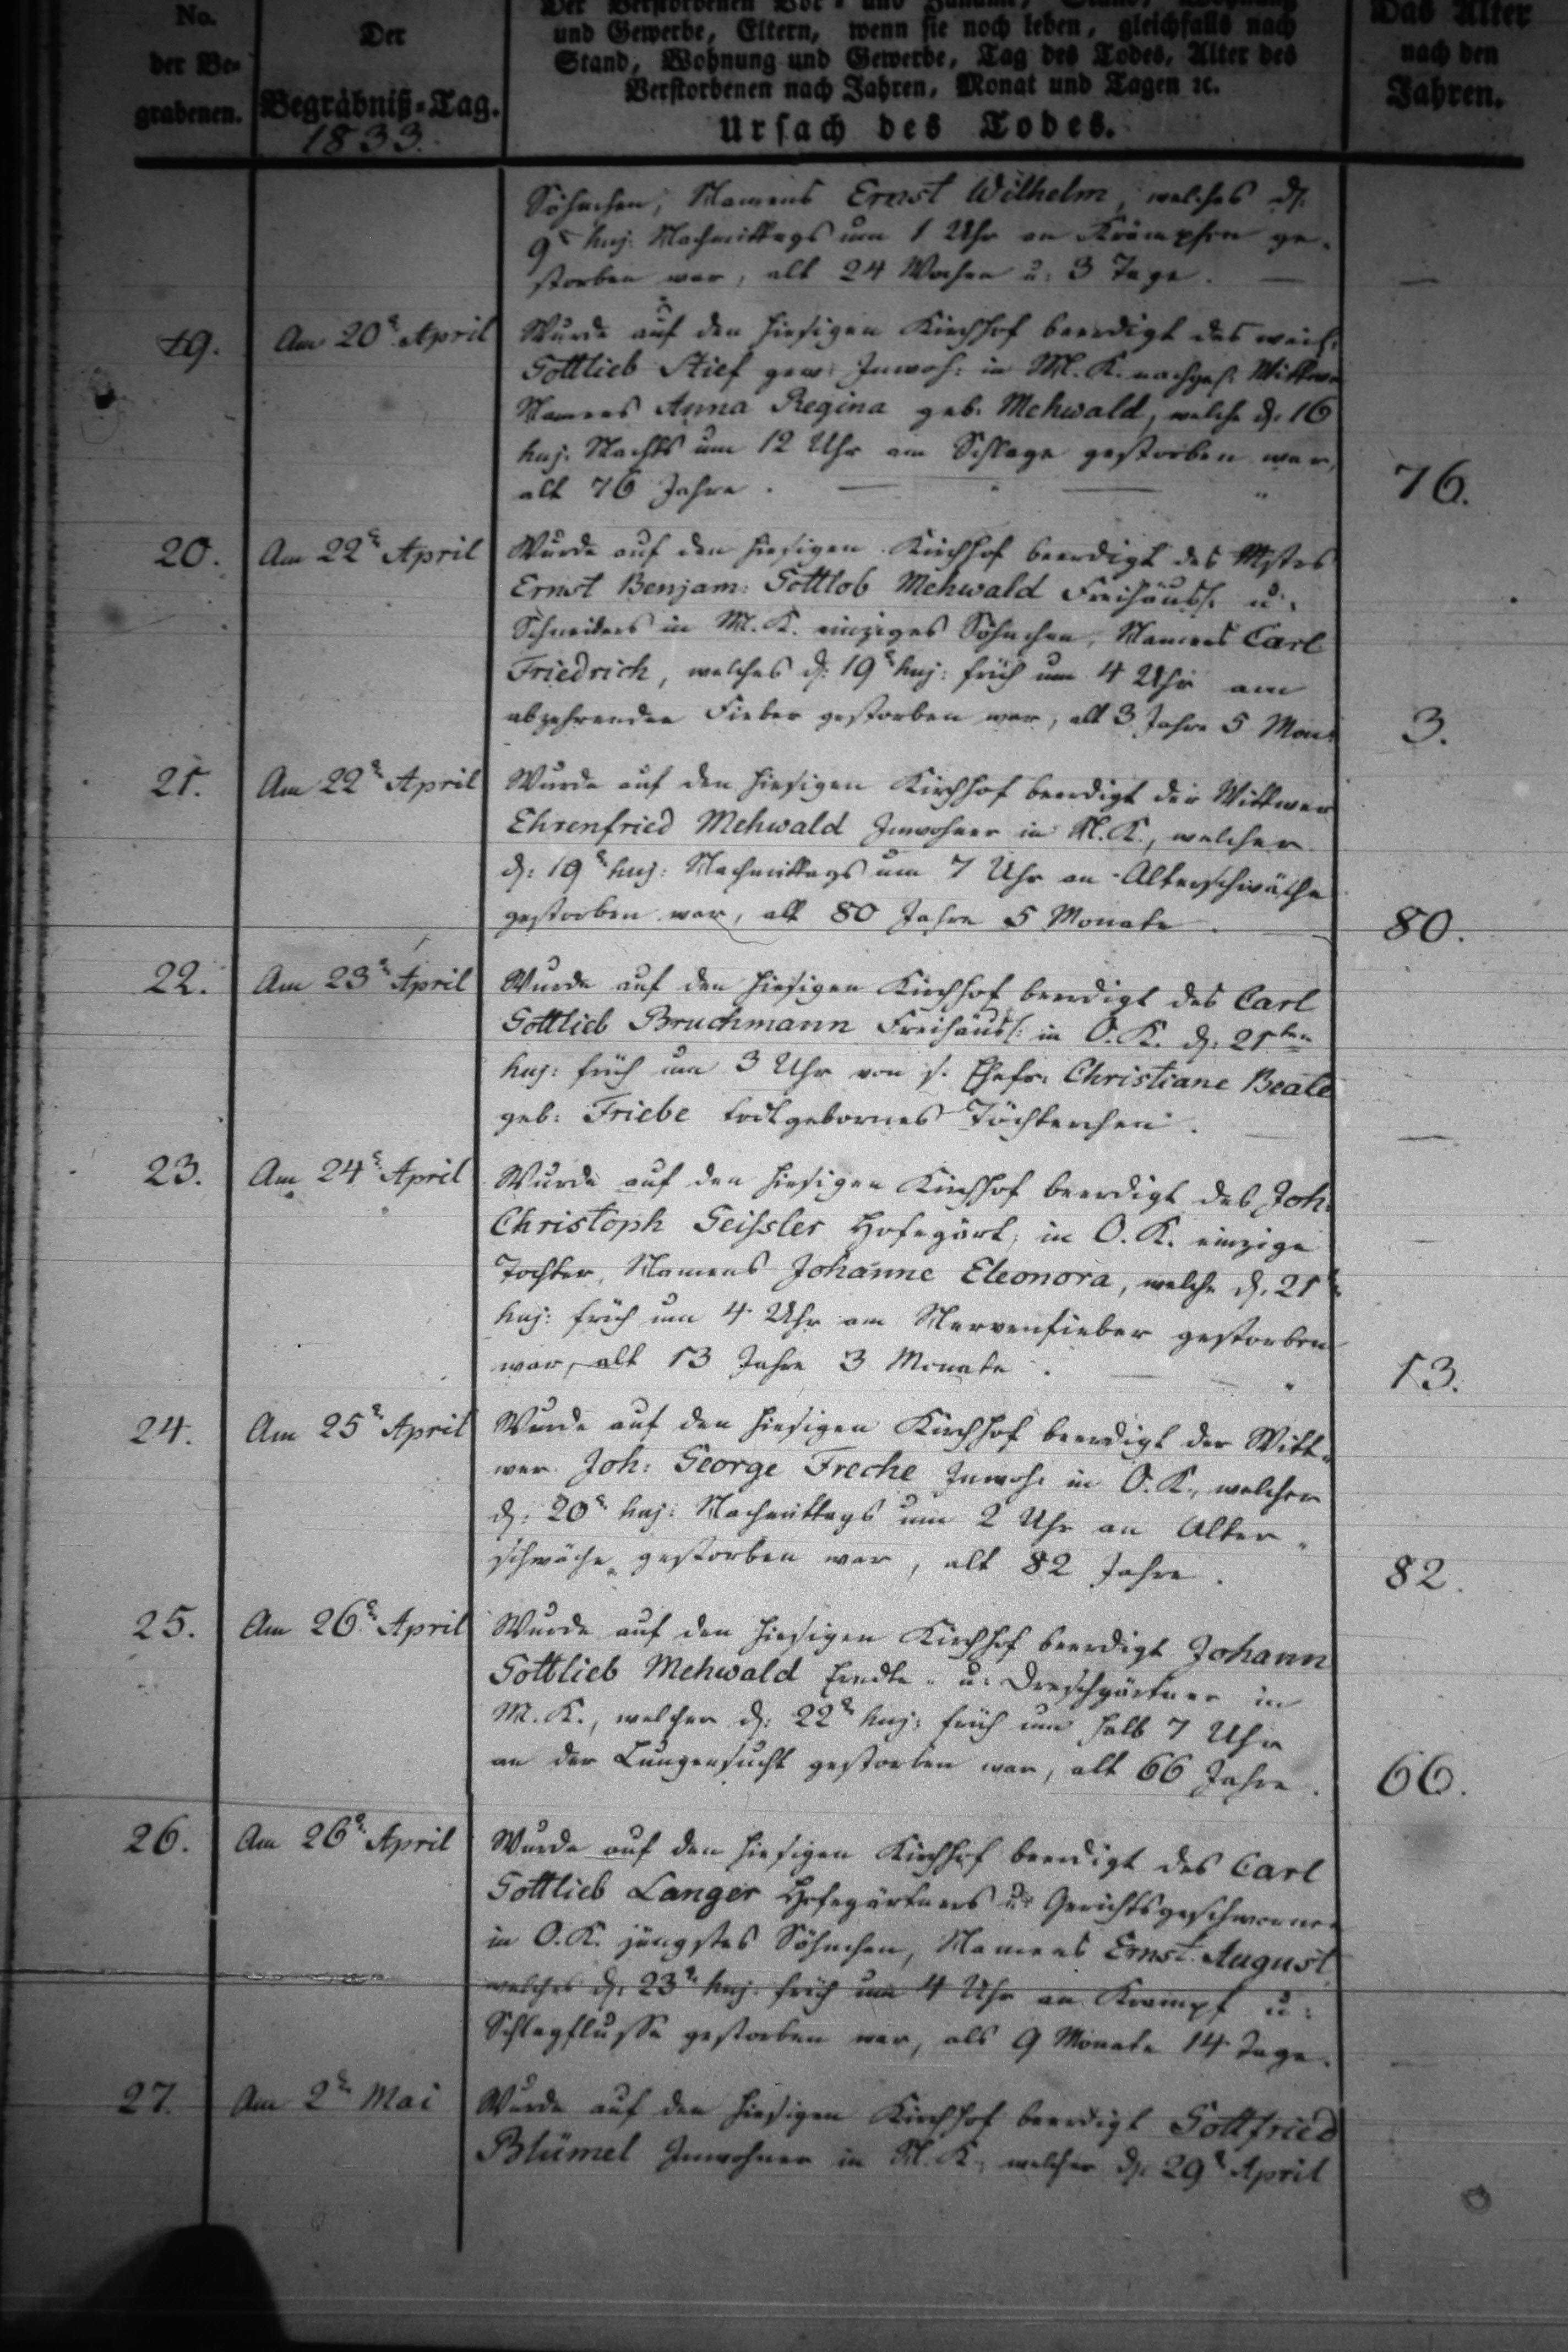 No.
der Be-
grabenen.
Der
Begräbniß-Tag.
1833.
Der Verstorbenen Vor- und Zuname, Stand, Wohnung
und Gewerbe, Eltern, wenn sie noch leben, gleichfalls nach
Stand, Wohnung und Gewerbe, Tag des Todes, Alter des
Verstorbenen nach Jahren, Monat und Tagen ꝛc.
Ursach des Todes.
Das Alter
nach den
Jahren.
Söhnchen, Namens Ernst Wilhelm, welches d:
9n huj: Nachmittags um 1 Uhr an Krämpfen ge-
storben war, alt 24 Wochen u: 3 Tage. —
19. Am 20n April Wurde auf den hiesigen Kirchhof beerdigt des weil:
Gottlieb Stief gew: Inwoh: in M. K. nachgel: Wittwe
Namens Anna Regina geb: Mehwald, welche d: 16
huj: Nachts um 12 Uhr am Schlage gestorben war,
alt 76 Jahre. 76.
20. Am 22n April Wurde auf den hiesigen Kirchhof beerdigt des Mstrs
Ernst Benjam: Gottlob Mehwald Freihäusl: u:
Schneiders in M. K. einziges Söhnchen, Namens Carl
Friedrich, welches d: 19n huj: früh um 4 Uhr am
abzehrenden Fieber gestorben war, alt 3 Jahre 5 Mon: 3.
21. Am 22n April Wurde auf den hiesigen Kirchhof beerdigt der Wittwer
Ehrenfried Mehwald Inwohner in M. K., welcher
d: 19n huj: Nachmittags um 7 Uhr an Alterschwäche
gestorben war, alt 80 Jahre 5 Monate. 80.
22. Am 23n April Wurde auf den hiesigen Kirchhof beerdigt des Carl
Gottlieb Bruchmann Freihäusl: in O. K. d: 21ten
huj: früh um 3 Uhr von s. Ehefr: Christiane Beate
geb: Friebe todtgebornes Töchterchen. —
23. Am 24n April Wurde auf den hiesigen Kirchhof beerdigt des Joh:
Christoph Geißler Hofegärt: in O. K. einzige
Tochter, Namens Johanne Eleonora, welche d. 21n
huj: früh um 4 Uhr am Nervenfieber gestorben
war, alt 13 Jahre 3 Monate. 13.
24. Am 25n April Wurde auf den hiesigen Kirchhof beerdigt der Witt-
wer Joh: George Freche Inwoh: in O. K., welcher
d: 20n huj: Nachmittags um 2 Uhr an Alter-
schwäche gestorben war, alt 82 Jahre. 82.
25. Am 26n April Wurde auf den hiesigen Kirchhof beerdigt Johann
Gottlieb Mehwald Erndte- u: Dreschgärtner in
M. K., welcher d: 22n huj: früh um halb 7 Uhr
an der Lungensucht gestorben war, alt 66 Jahre. 66.
26. Am 26n April Wurde auf den hiesigen Kirchhof beerdigt des Carl
Gottlieb Langer Hofegärtners u: Gerichtsgeschwornen
in O. K. jüngstes Söhnchen, Namens Ernst August,
welches d: 23n huj: früh um 4 Uhr an Krampf u:
Schlagflusse gestorben war, als 9 Monate 14 Tage.
27. Am 2n Mai Wurde auf den hiesigen Kirchhof beerdigt Gottfried
Blümel Inwohner in M. K., welcher d: 29n April